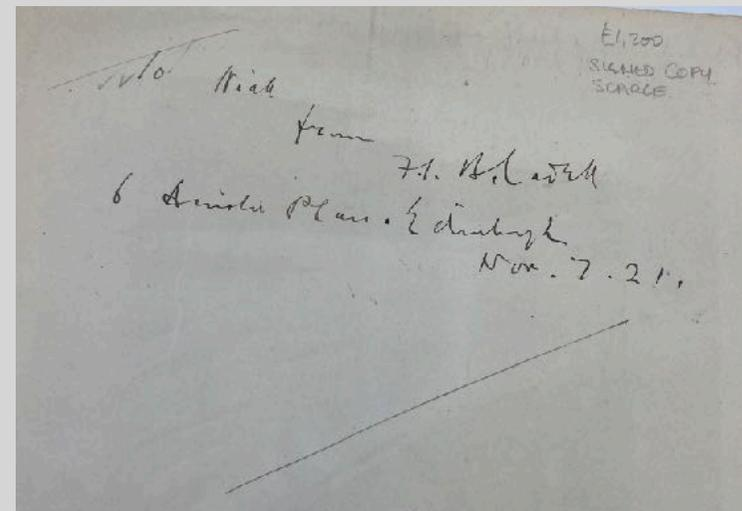 £1,200
SIGNED COPY
SCARCE
To Niall
from
F.C.B. Cadell
6 Ainslie Place. Edinburgh
Nov. 7. 21.